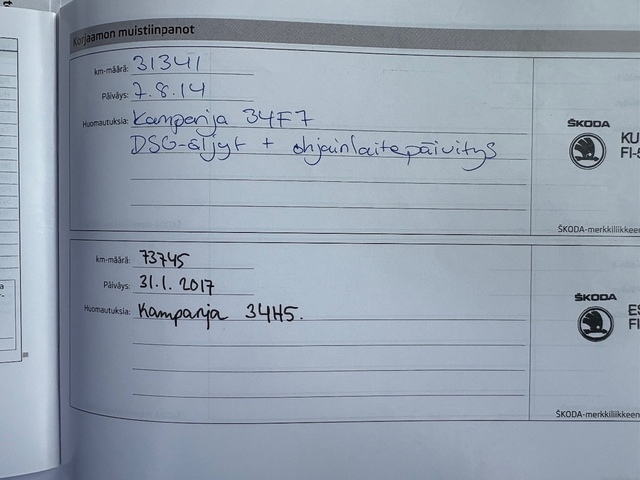 Korjaamon muistiinpanot
km-määrä: 31341
Päiväys: 7.8.14
Huomautuksia: Kampanja 34F7
DSG-öljyt + ohjainlaitepäivitys
ŠKODA
KU
FI-
ŠKODA-merkkiliikkeen
km-määrä: 73745
Päiväys: 31.1. 2017
Huomautuksia: Kampanja 34H5.
ŠKODA
ES
FI
ŠKODA-merkkiliikkeen